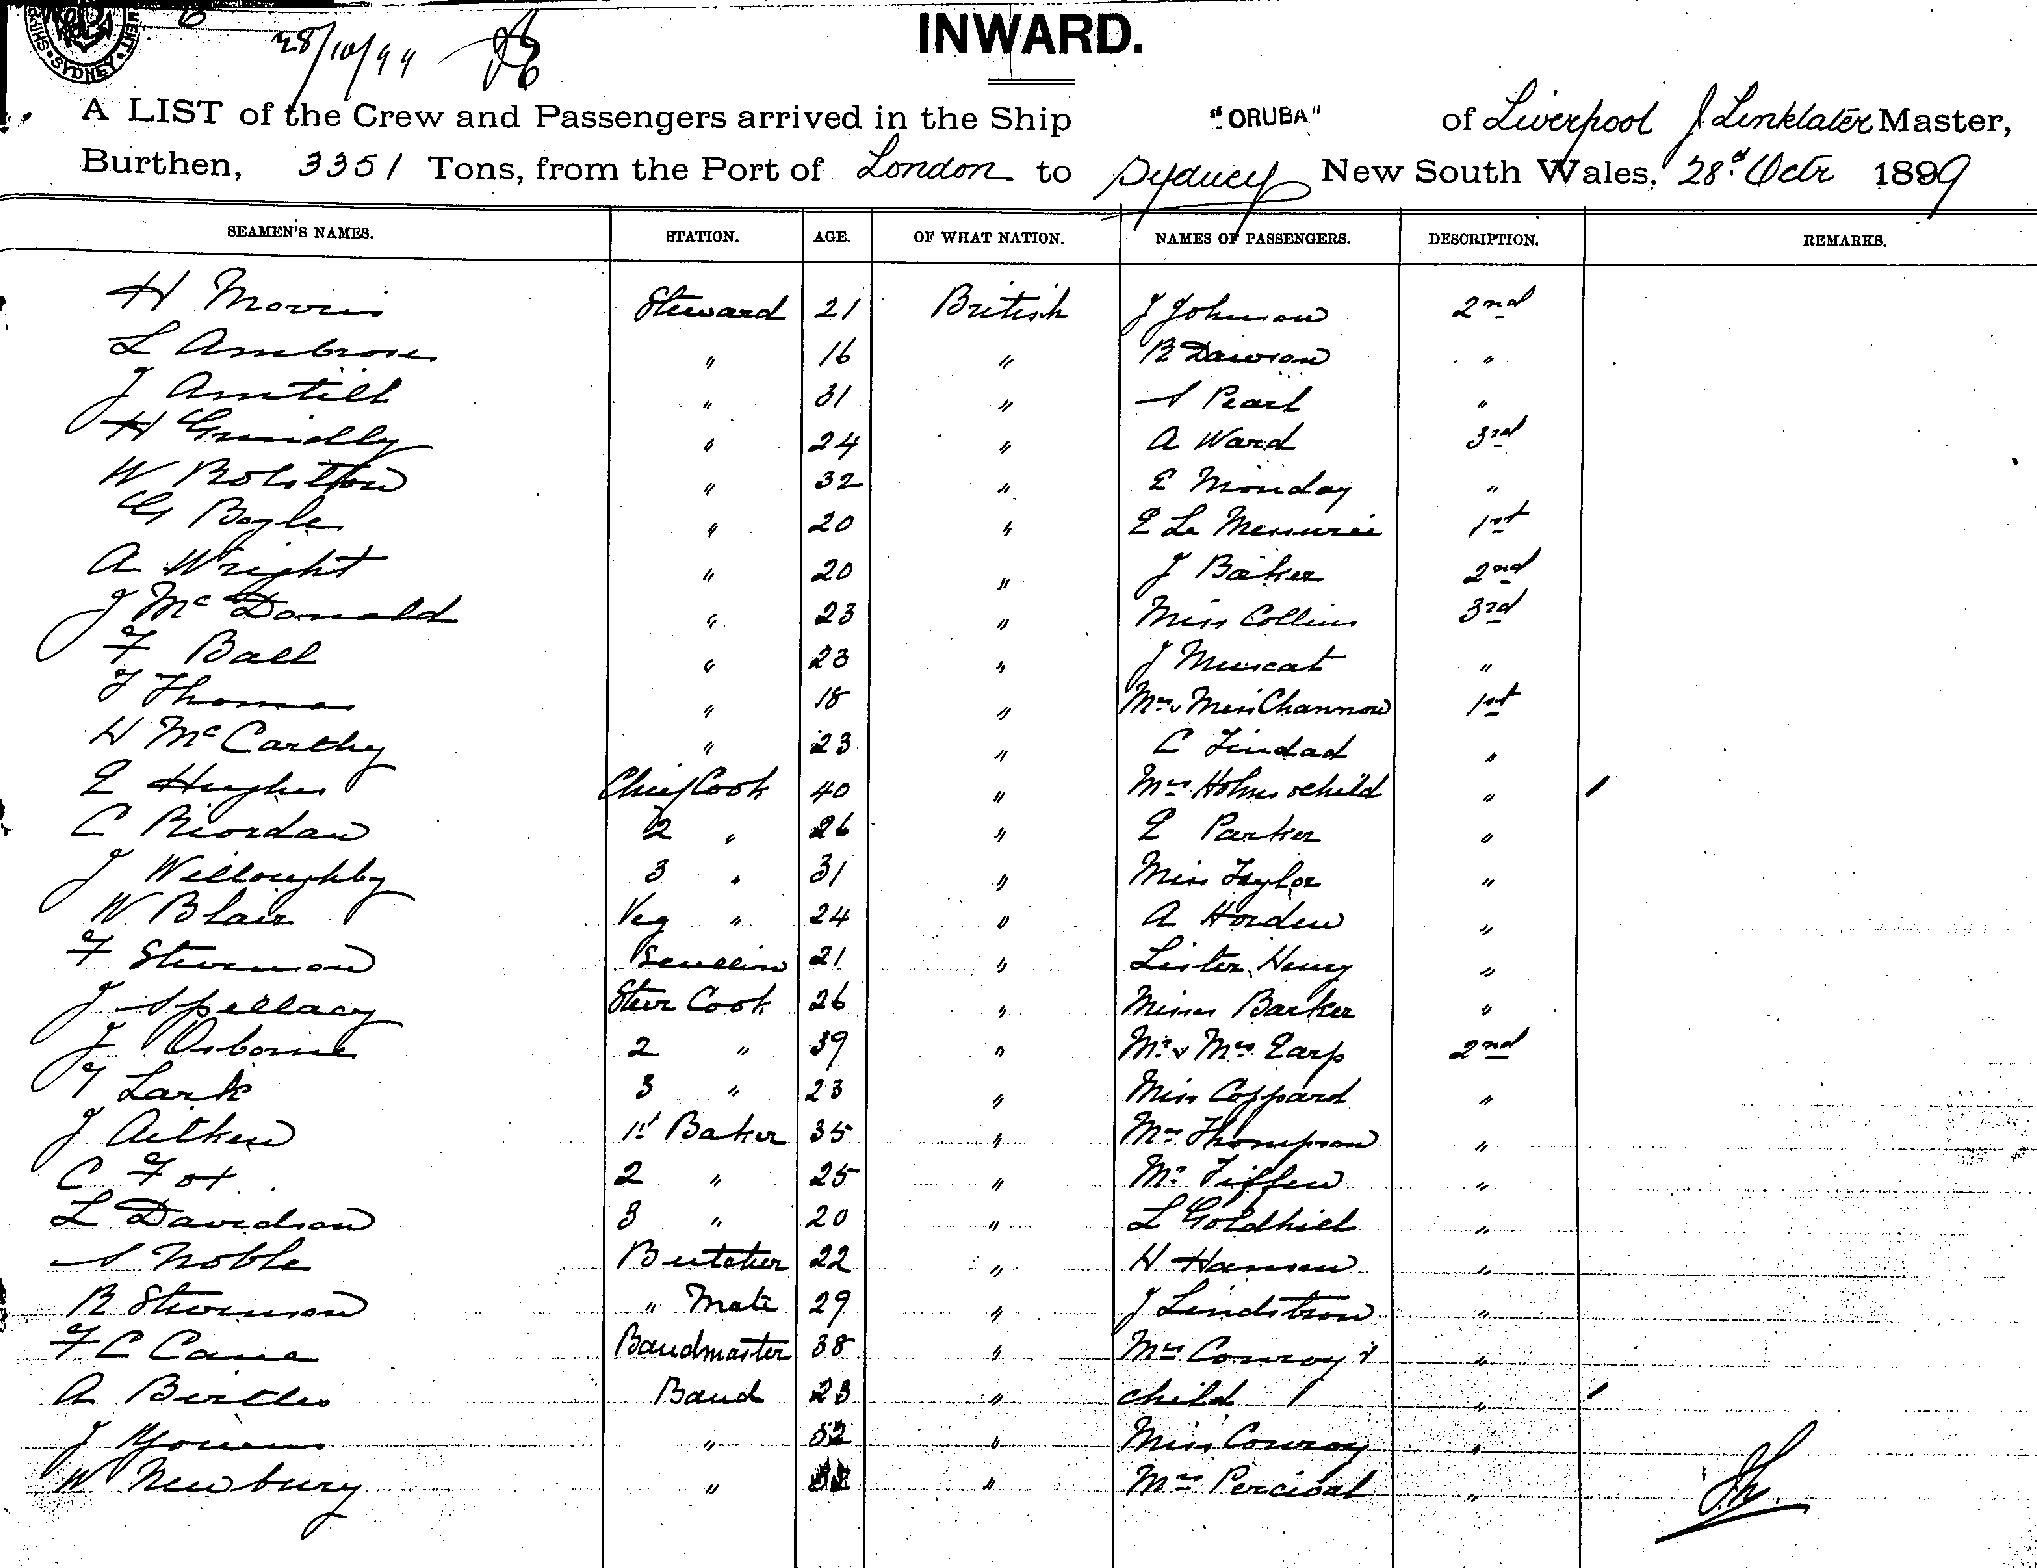 SYDNEY
28/10/99
INWARD.
A LIST of the Crew and Passengers arrived in the Ship "ORUBA" of Liverpool J Linklater Master,
Burthen, 3351 Tons, from the Port of London to Sydney New South Wales, 28th Octr 1899
SEAMEN'S NAMES. STATION. AGE. OF WHAT NATION. NAMES OF PASSENGERS. DESCRIPTION. REMARKS.
H Morris Steward 21 British J Johnson 2nd
L Ambrose " 16 " R Dawson "
J Amtill " 31 " S Pearl "
H Grindlly " 24 " A Ward 3rd
W Rolston " 32 " E Monday "
G Boyle " 20 " E Le Messurier 1st
A Wright " 20 " J Baker 2nd
J McDonald " 23 " Miss Collins 3rd
F Ball " 23 " J Muscat "
T Thomas " 18 " Mrs & Miss Channow 1st
H McCarthy " 23 " C Lindad "
E Hughes Chief Cook 40 " Mrs Holmes & child "
C Riordan 2 " 26 " E Parker "
J Willoughby 3 " 31 " Miss Taylor "
W Blair Veg " 24 " A Hordern "
F Stevenson Scullion 21 " Lister Henry "
J Spellacy Steer Cook 26 " Misses Barker "
J Osborne 2 " 39 " Mr & Mrs Earp 2nd
T Lark 3 " 23 " Miss Coppard "
J Aitken 1st Baker 35 " Mrs Thompson "
C Fox 2 " 25 " Mr Tiffen "
L Davidson 3 " 20 " L Goldhill "
S Noble Butcher 22 " H Hansen "
R Stevenson " Mate 29 " J Lindstrom "
F C Cane Bandmaster 38 " Mrs Conroy &
A Birtles Band 23 " child 1 "
J Youens " 52 " Miss Conroy "
W Newbury " " Mrs Percival "